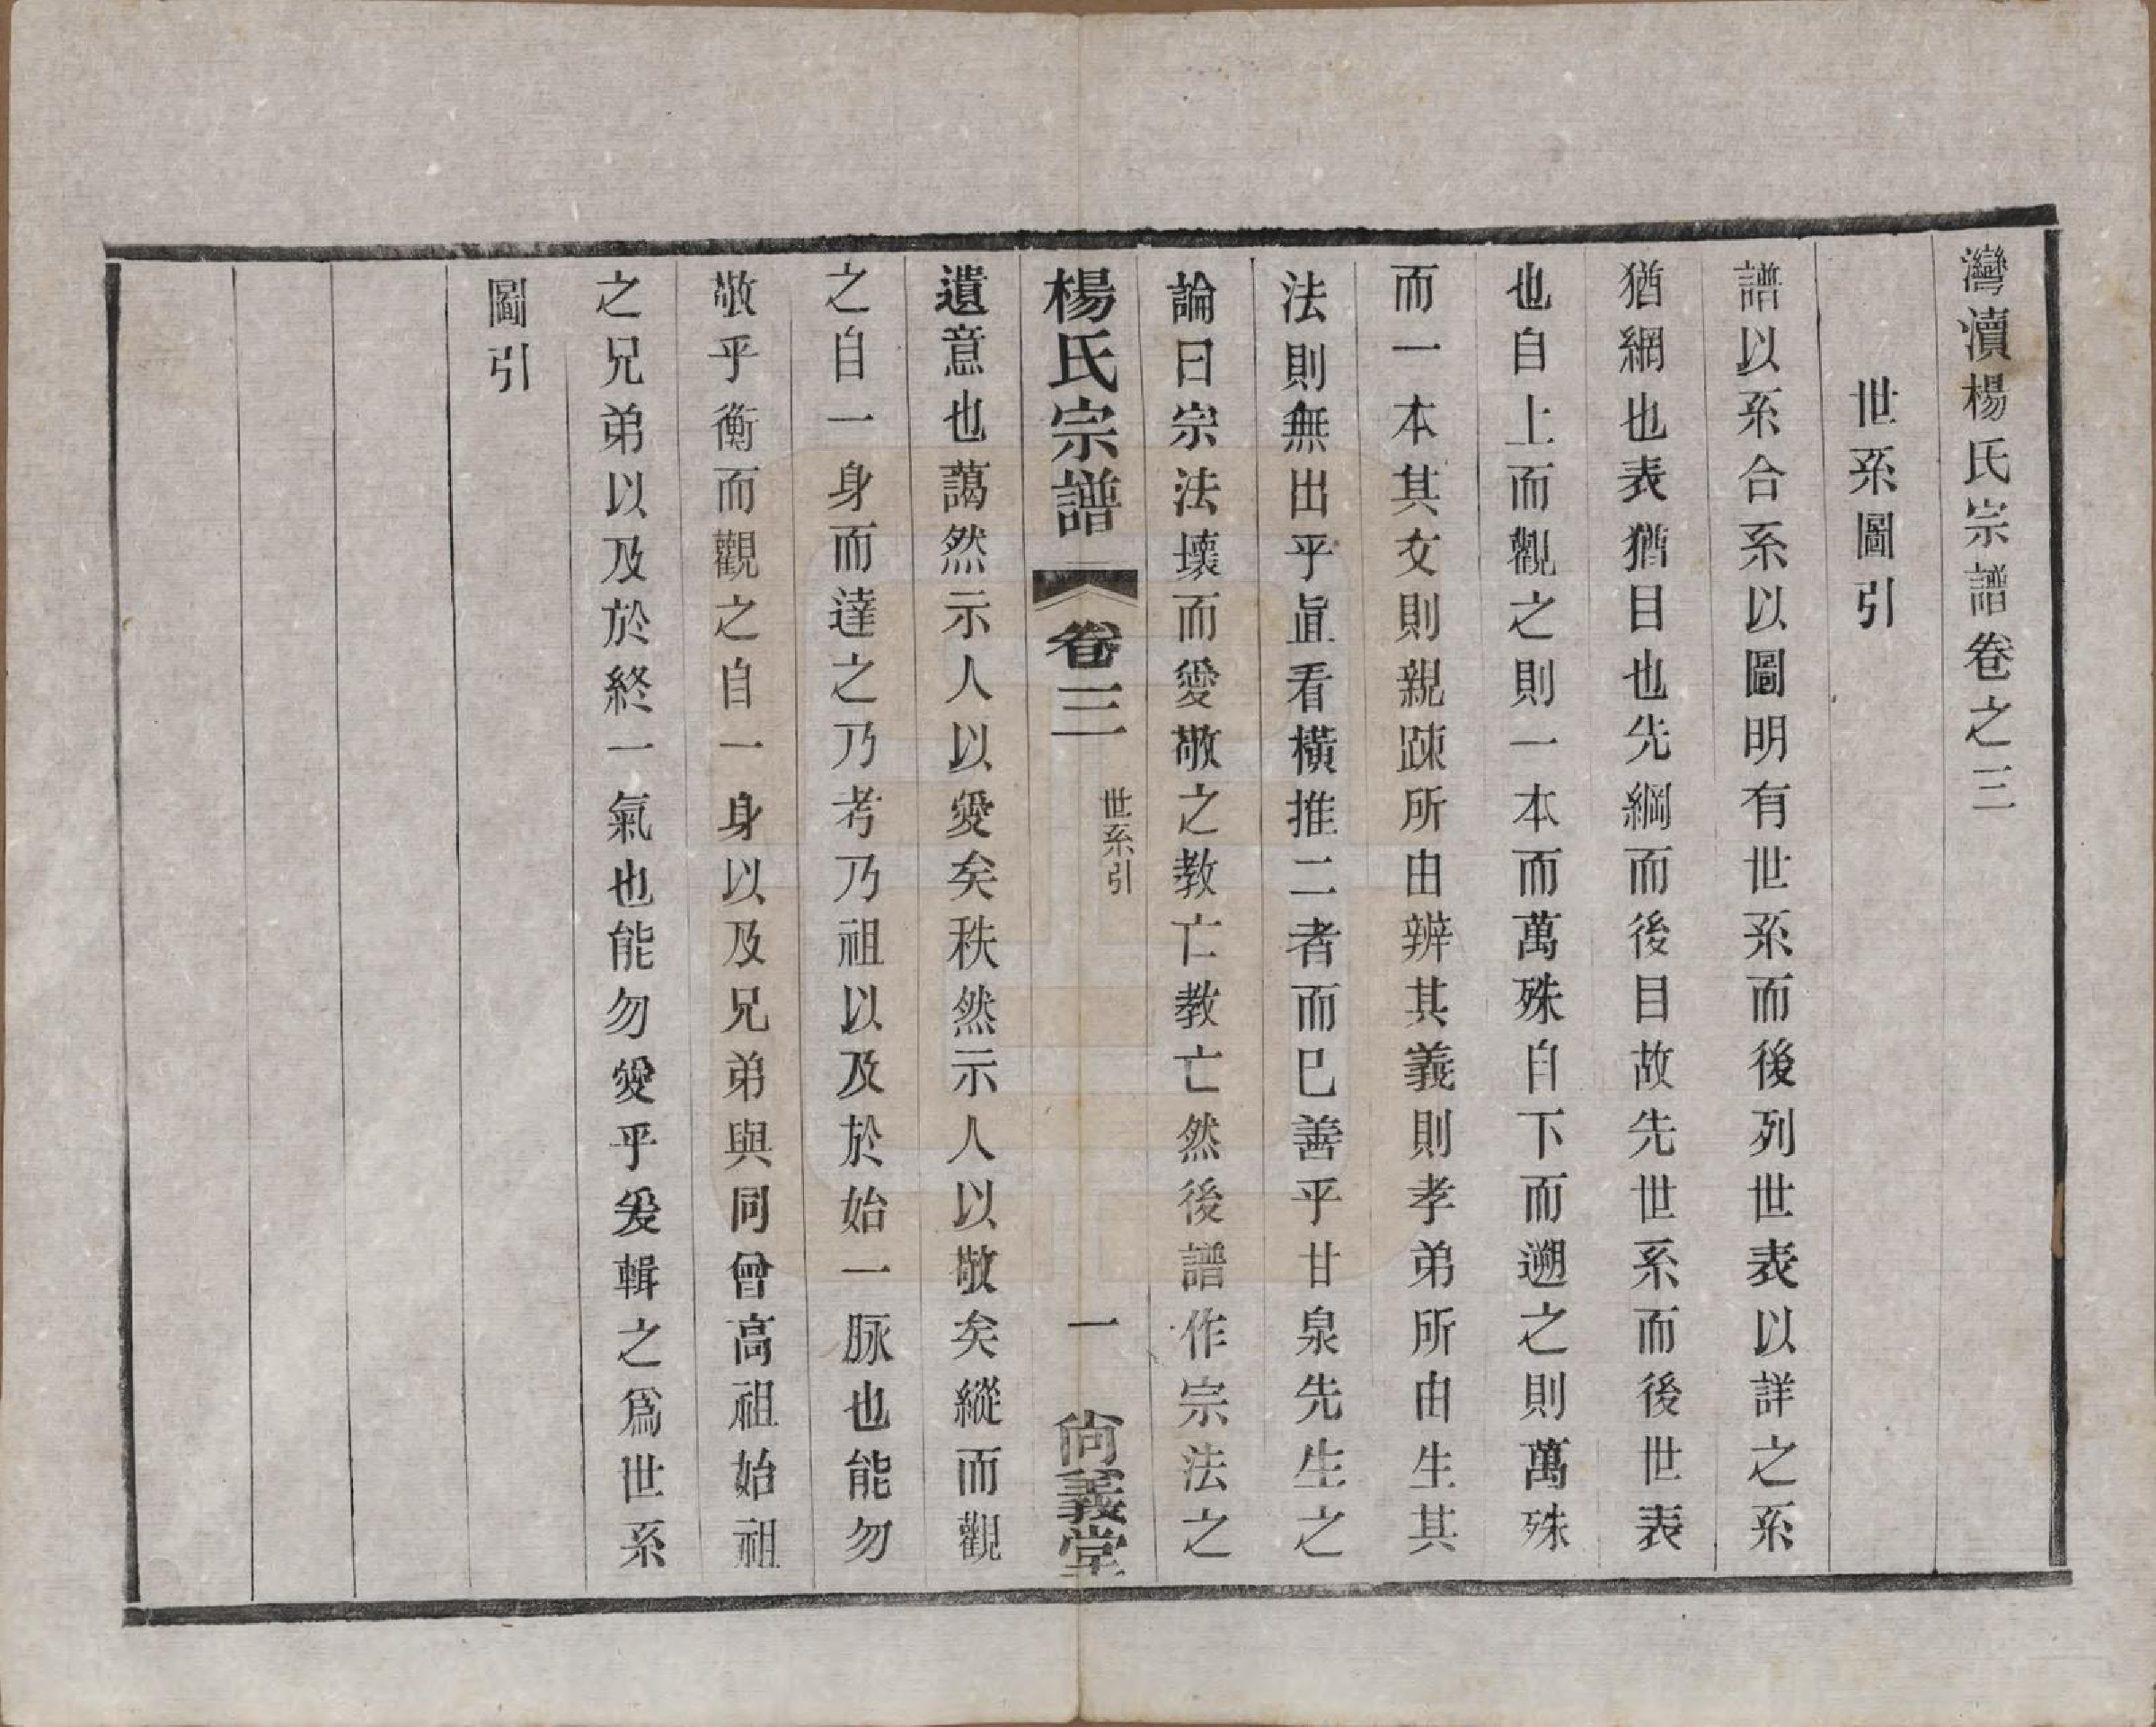 灣瀆楊氏宗譜卷之三
世系圖引
譜以系合系以圖明有世系而後列世表以詳之系
猶綱也表猶目也先綱而後目故先世系而後世表
也自上而觀之則一本而萬殊自下而遡之則萬殊
而一本其文則親踈所由辨其義則孝弟所由生其
法則無出乎直看橫推二者而已善乎甘泉先生之
論曰宗法壞而愛敬之教亡教亡然後譜作宗法之
楊氏宗譜 卷三 世系引 一 尙義堂
遺意也藹然示人以愛矣秩然示人以敬矣縱而觀
之自一身而達之乃考乃祖以及於始一脉也能勿
敬乎衡而觀之自一身以及兄弟與同曾高祖始祖
之兄弟以及於終一氣也能勿愛乎爰輯之爲世系
圖引